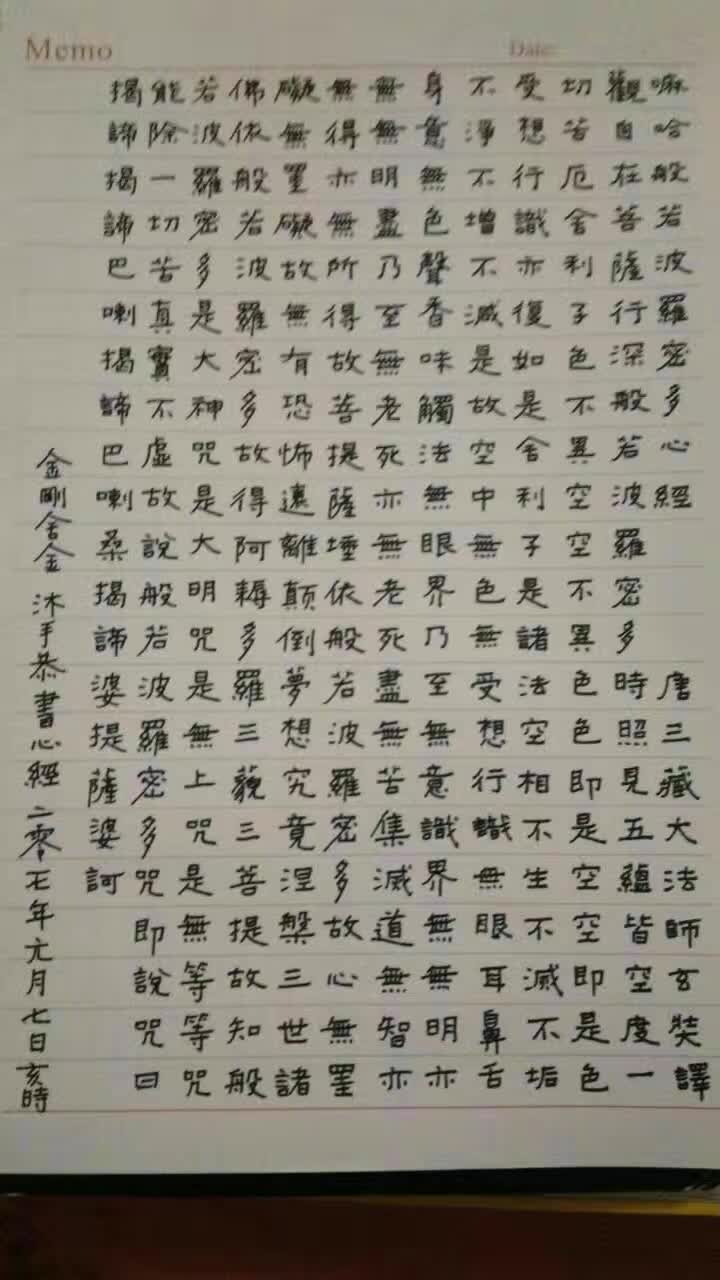 Memo
Date:
嘛哈般若波羅密多心經 唐三藏大法師玄奘譯
觀自在菩薩行深般若波羅密多時照見五蘊皆空度一
切苦厄舍利子色不異空空不異色色即是空空即是色
受想行識亦復如是舍利子是諸法空相不生不滅不垢
不淨不增不減是故空中無色無受想行識無眼耳鼻舌
身意無色聲香味觸法無眼界乃至無意識界無無明亦
無無明盡乃至無老死亦無老死盡無苦集滅道無智亦
無得亦無所得故菩提薩埵依般若波羅密多故心無罣
礙無罣礙故無有恐怖遠離顛倒夢想究竟涅槃三世諸
佛依般若波羅密多故得阿耨多羅三藐三菩提故知般
若波羅密多是大神咒是大明咒是無上咒是無等等咒
能除一切苦真實不虛故說般若波羅密多咒即說咒曰
揭諦揭諦巴喇揭諦巴喇桑揭諦婆提薩婆訶
金剛舍金 沐手恭書心經二零一七年元月七日亥時